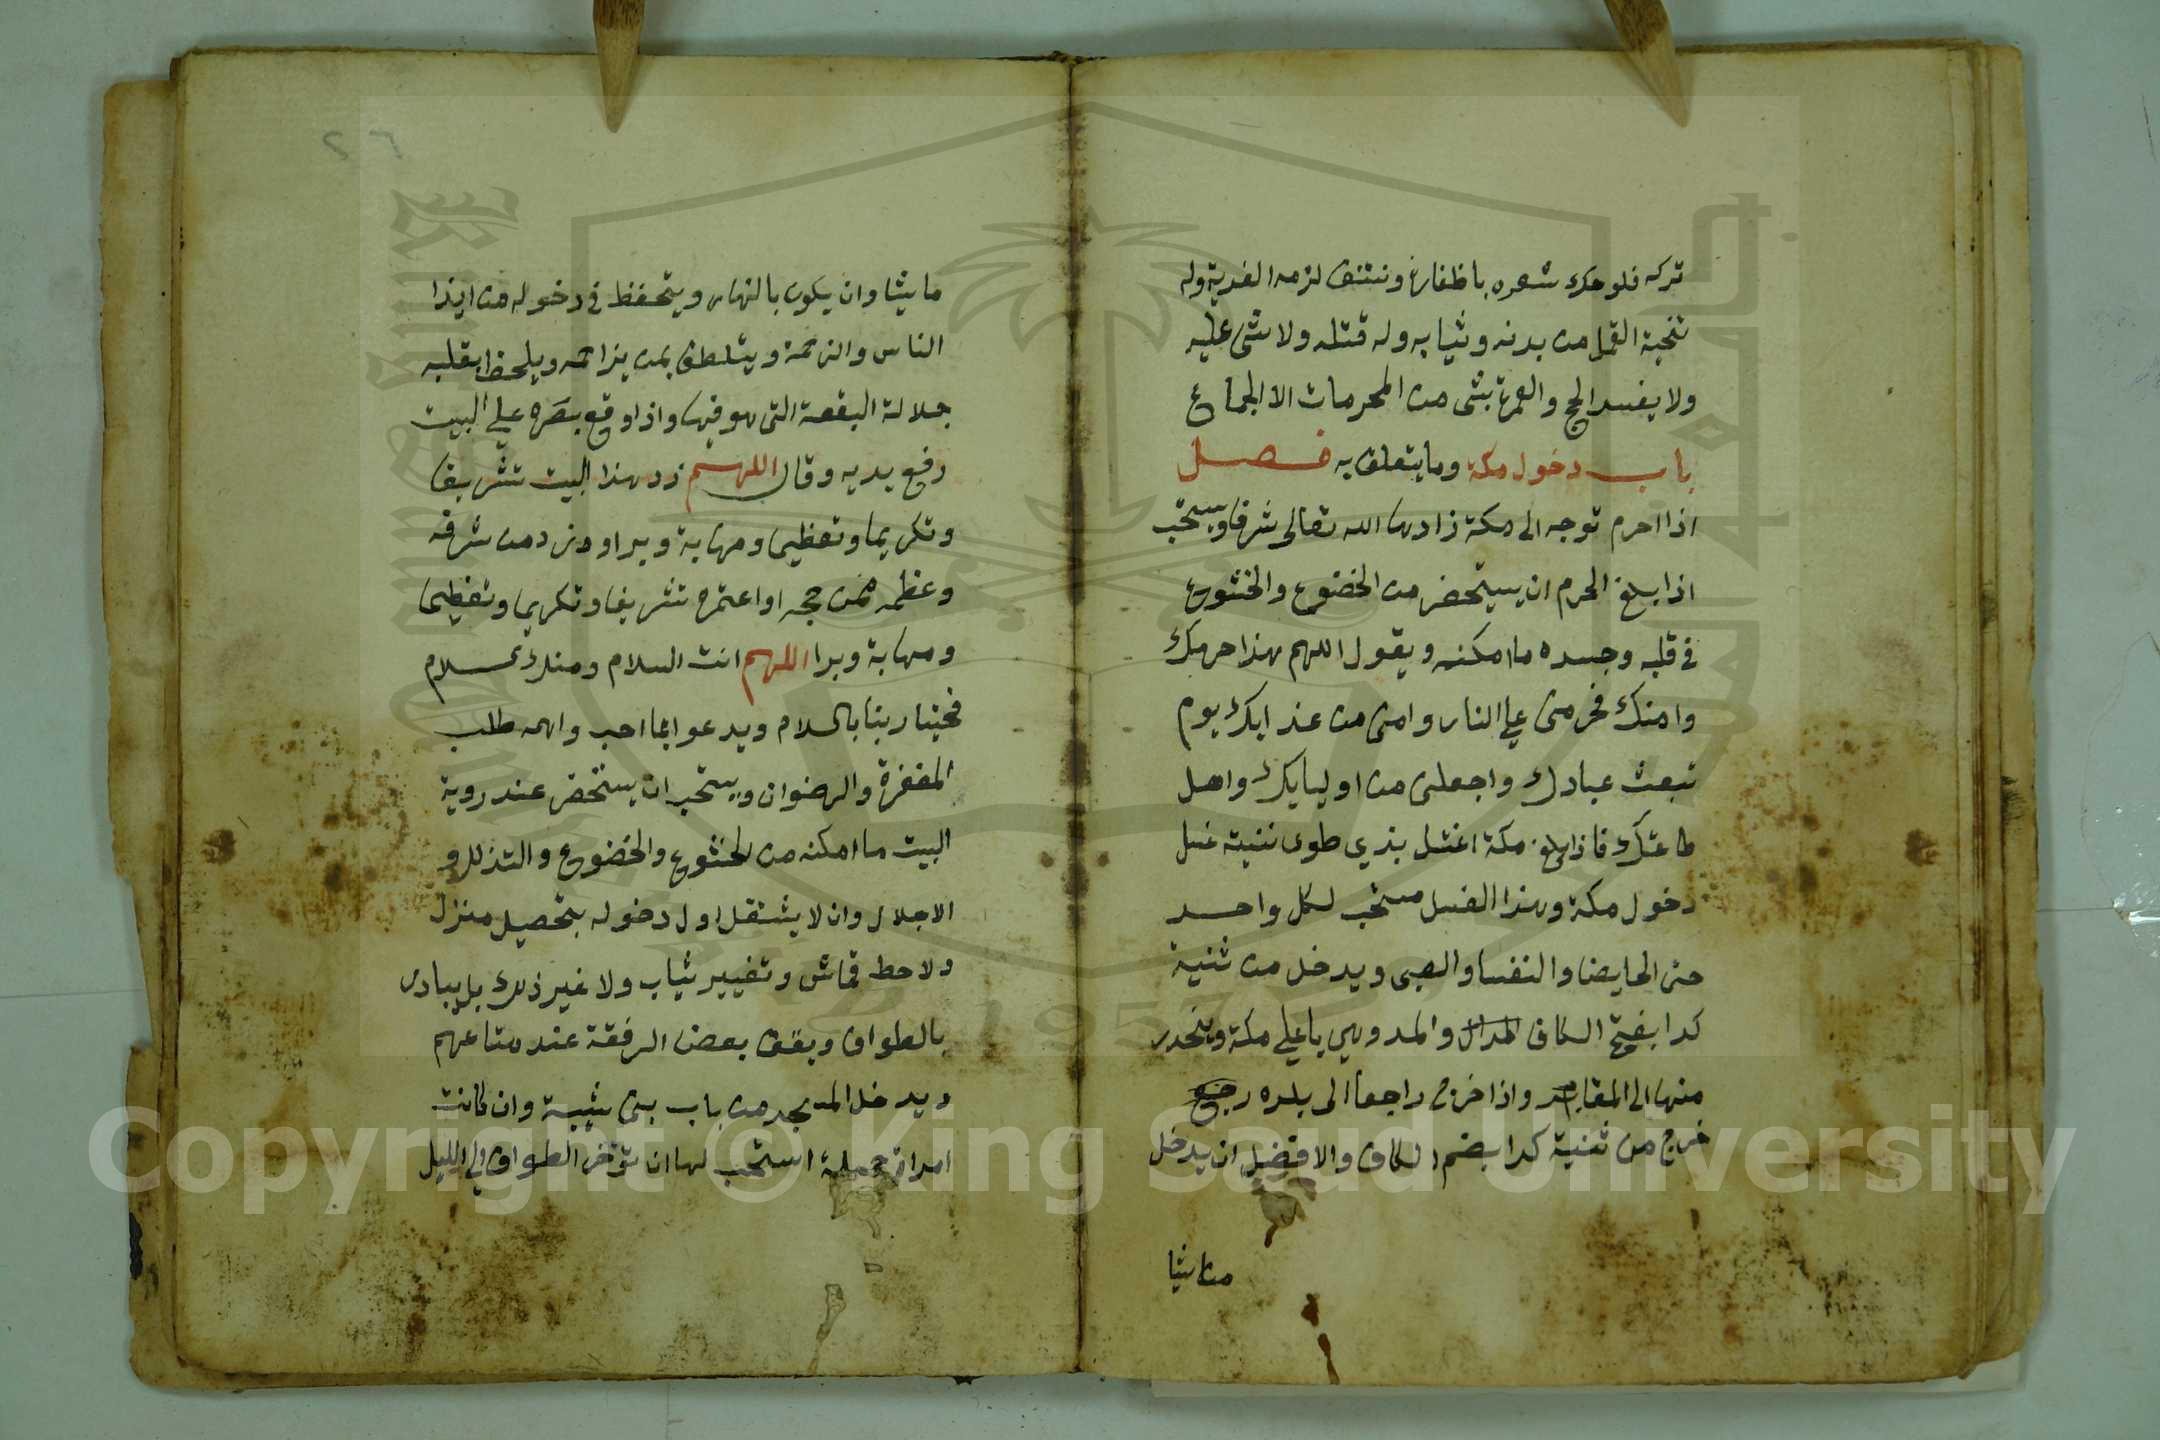 تركه فلو حك شعره باظفاره ونتف لزمه الفدية وله
تنحية القمل من بدنه وثيابه وله قتله ولا شى عليه
ولا يفسد الحج والعمرة بشى من المحرمات الا الجماع
باب دخول مكة وما يتعلق به فصل
اذا احرم توجه الى مكة زادها الله تعالى شرفا ويستحب
اذا بلغ الحرم ان يستحضر من الخضوع والخشوع
فى قلبه وجسده ما امكنه ويقول اللهم هذا حرمك
وامنك فحرمنى على النار وامنى من عذابك يوم
تبعث عبادك واجعلنى من اوليايك واهل
طاعتك فاذا بلغ مكة اغتسل بذي طوى بنية غسل
دخول مكة وهذا الغسل مستحب لكل واحد
حتى الحايض والنفسا والصبى ويدخل من ثنية
كدا بفتح الكاف والمد وهي باعلى مكة وينحدر
منها الى المقابر واذا خرج راجعا الى بلده
خرج من ثنية كدا بضم الكاف والافضل ان يدخل
ماشيا
٢٦
ماشيا وان يكون بالنهار ويتحفظ فى دخوله من ايذا
الناس والزحمة ويتلطف بمن يزاحمه ويلحظ بقلبه
جلالة البقعة التى هو فيها واذا وقع بصره على البيت
رفع يديه وقال اللهم زد هذا البيت تشريفا
وتكريما وتعظيما ومهابة وبرا وزد من شرفه
وعظمه ممن حجه او اعتمره تشريفا وتكريما وتعظيما
ومهابة وبرا اللهم انت السلام ومنك السلام
فحينا ربنا بالسلام ويدعو بما احب واهمه طلب
المغفرة والرضوان ويستحب ان يستحضر عند روية
البيت ما امكنه من الخشوع والخضوع والتذلل و
الاجلال وان لا يشتغل اول دخوله بتحصيل منزل
ولا حط قماش وتغيير ثياب ولا غير ذلك بل يبادر
بالطواف ويقف بعض الرفقة عند متاعهم
ويدخل المسجد من باب بنى شيبة وان كانت
امراة جميلة استحب لها ان تؤخر الطواف الى الليل
Copyright © King Saud University
1957